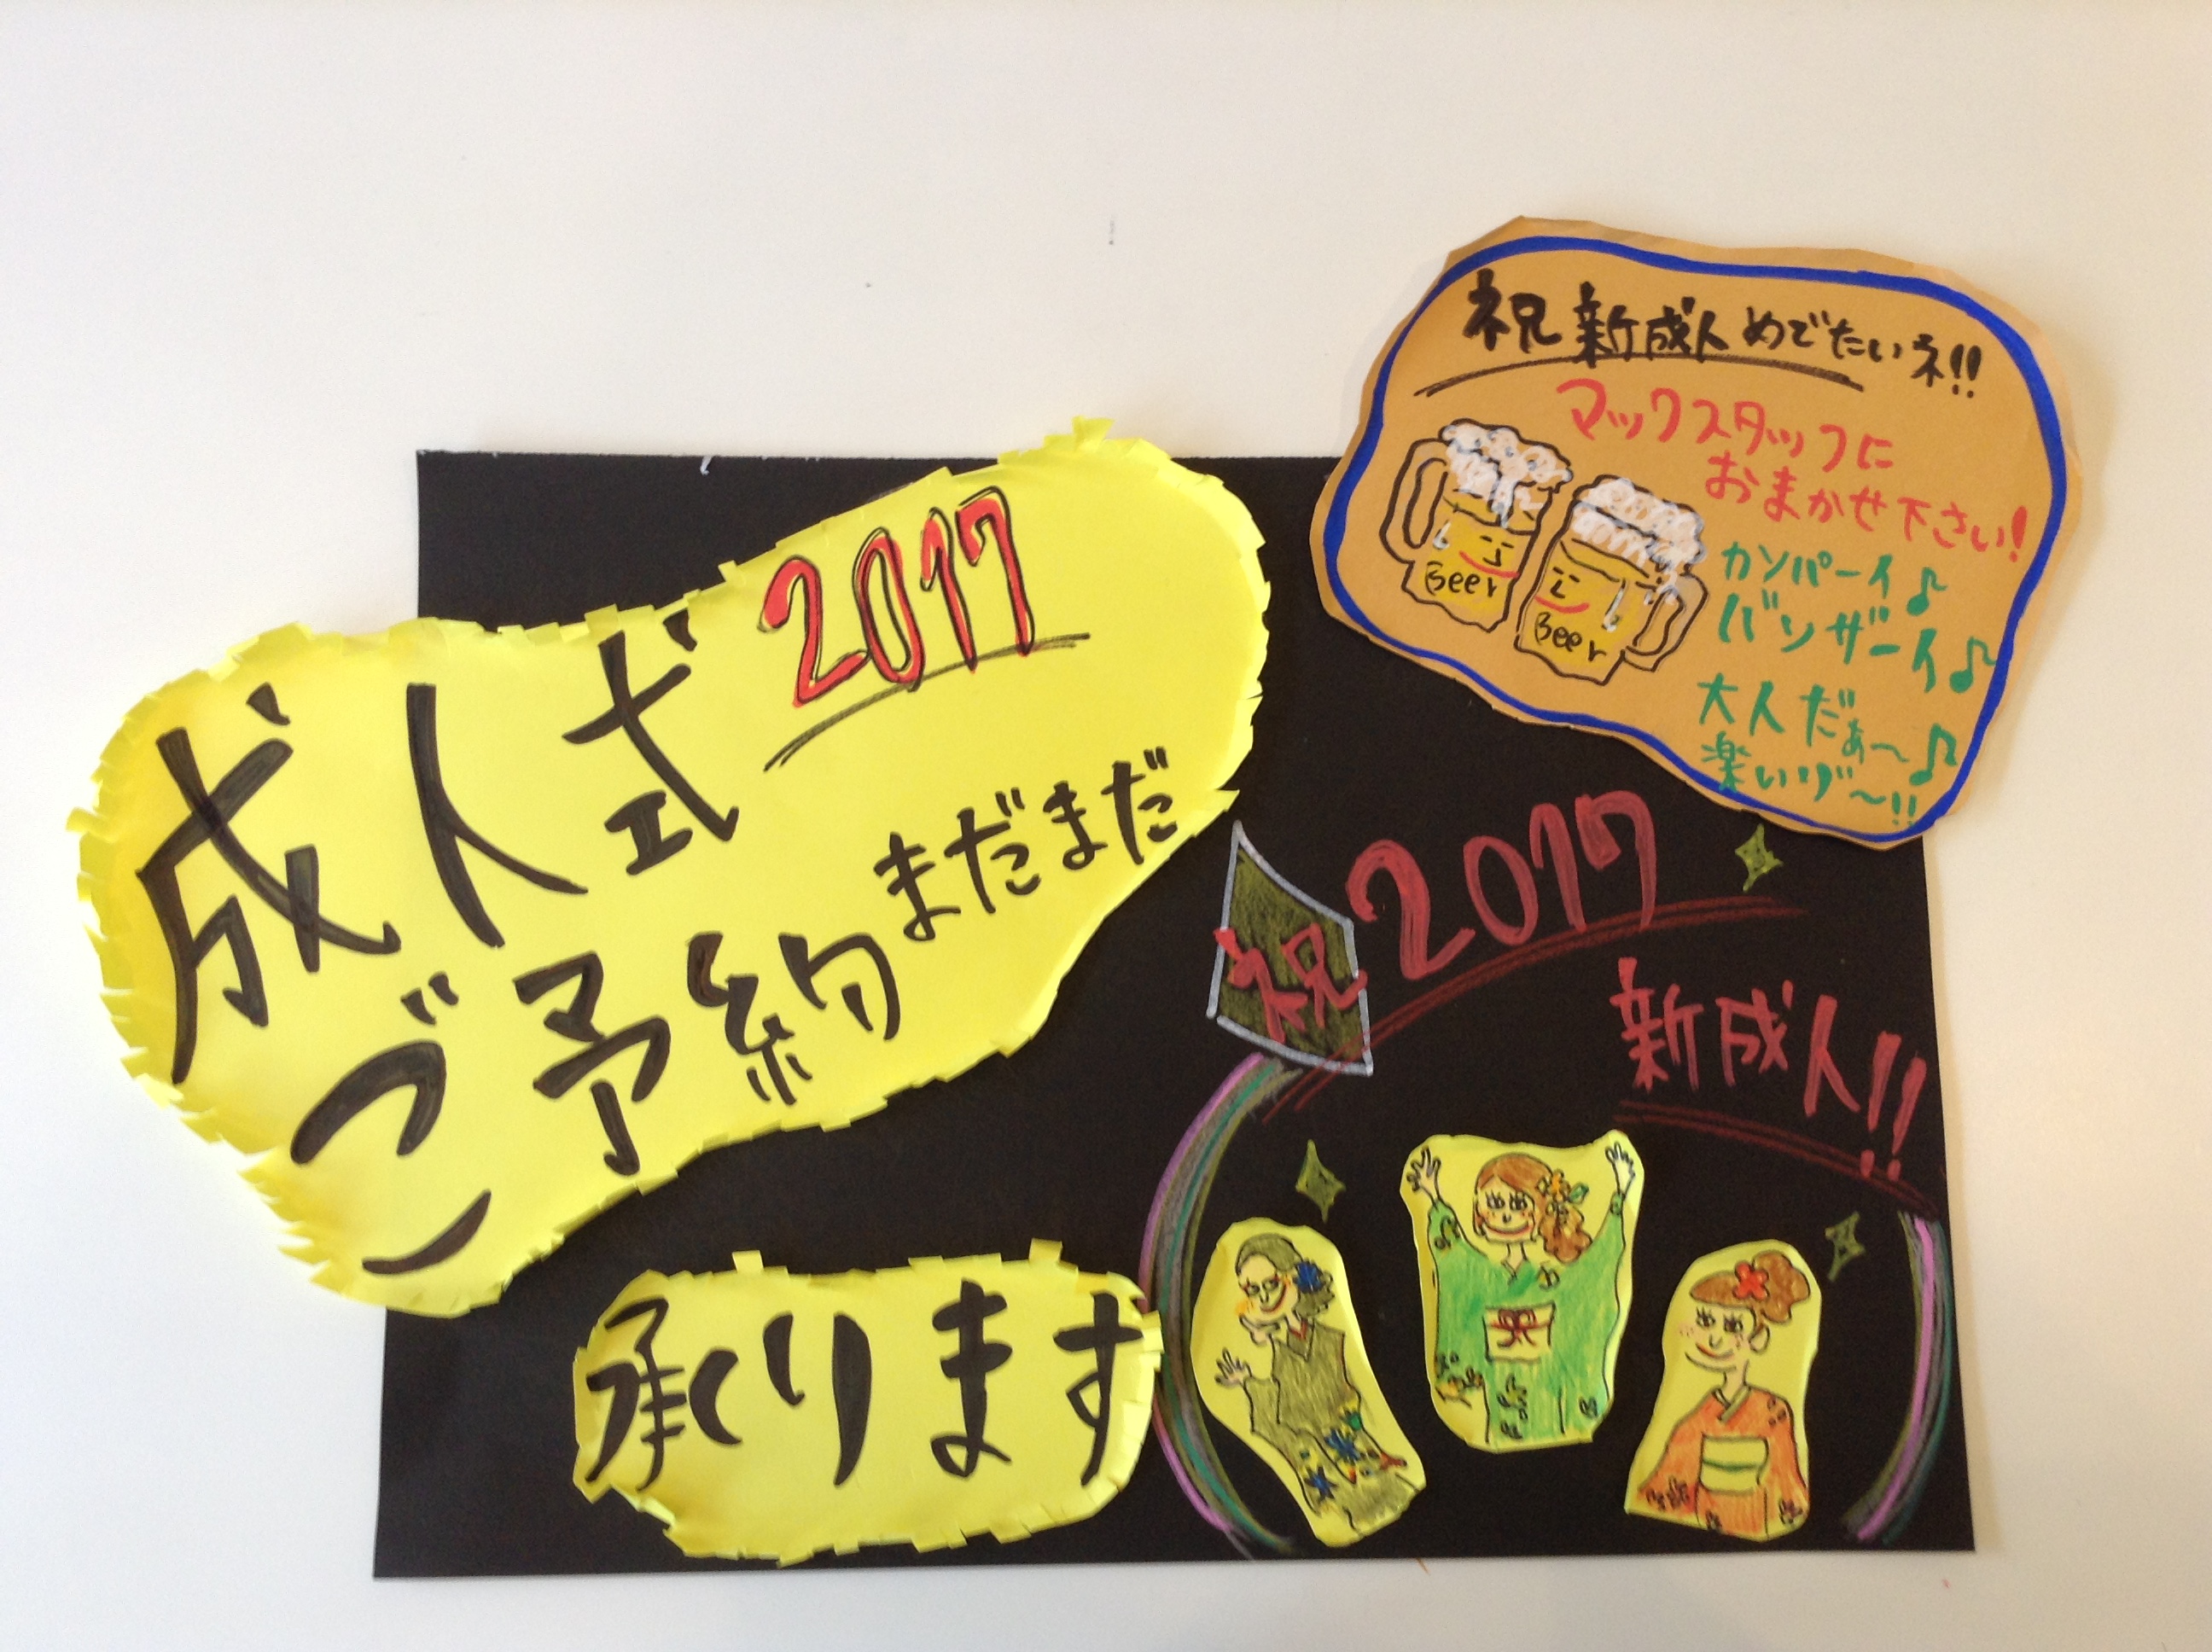 成人式 2017
ご予約 まだまだ
承ります
祝 新成人 めでたいネ!!
マックスタッフに
おまかせ下さい!
カンパーイ♪
バンザーイ♪
大人だぁ〜♪
楽いリ゛〜!!
Beer
Beer
祝 2017
新成人!!